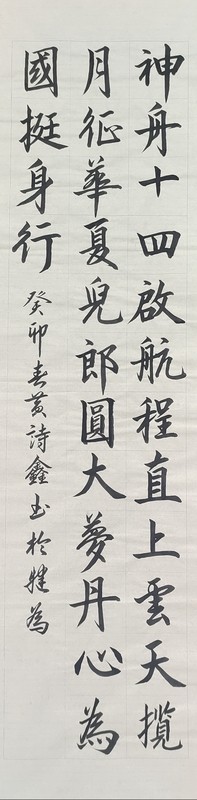 神舟十四啟航程直上雲天攬
月征華夏兒郎圓大夢丹心為
國挺身行
癸卯春黃詩鑫書於犍為